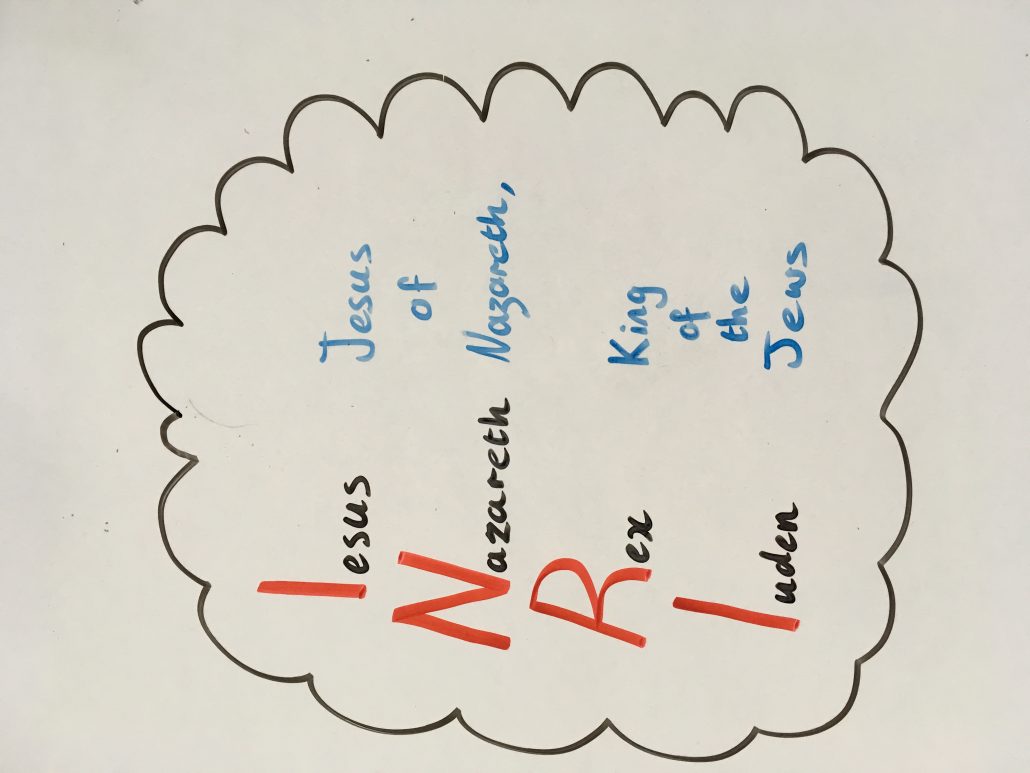 Iesus Jesus
of
Nazareth Nazareth,
Rex King
of
the
Iuden Jews